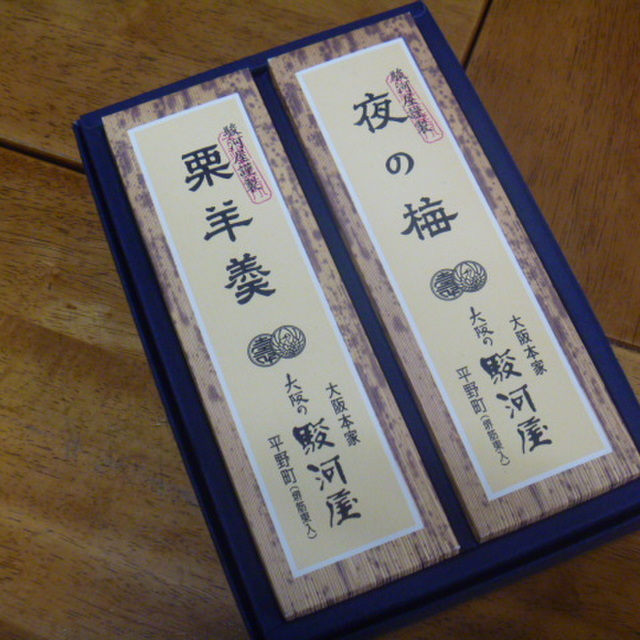 夜の梅
駿河屋謹製
大阪本家
大阪の駿河屋
平野町
栗羊羹
駿河屋謹製
大阪本家
大阪の駿河屋
平野町